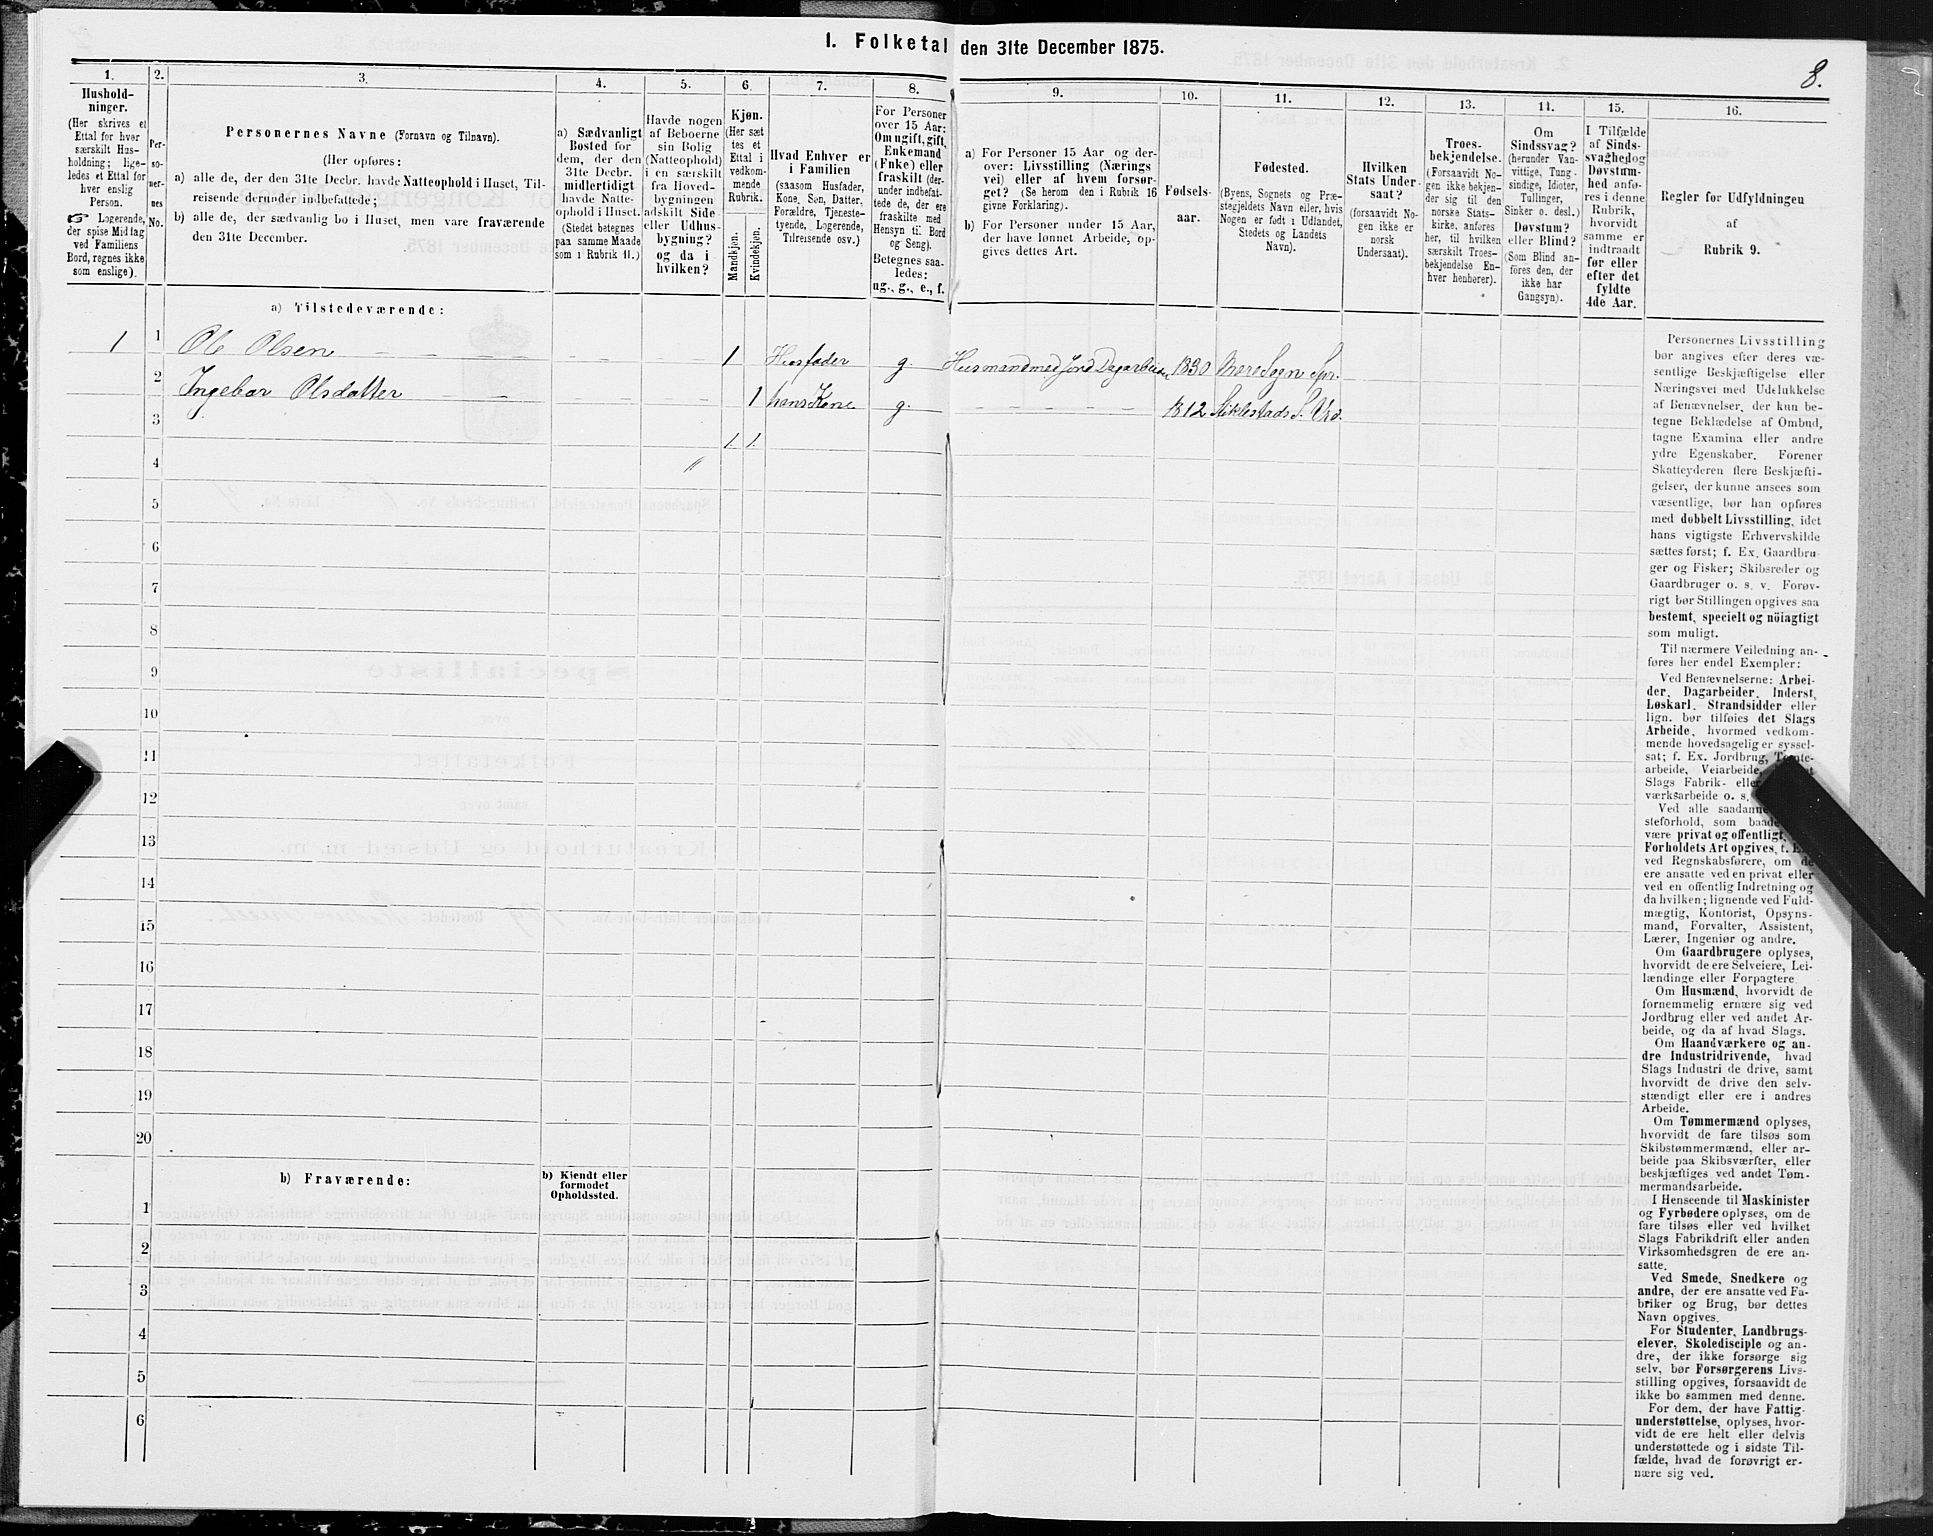 I. Folketal den 31te December 1875.
8.
1.
Hushold-
ninger.
(Her skrives et
Ettal for hver
særskilt Hus-
holdning; lige-
ledes et Ettal for
hver enslig
Person.
☞ Logerende,
der spise Middag
ved Familiens
Bord, regnes ikke
som enslige).
2.
Per-
so-
ner-
nes
No.
3.
Personernes Navne (Fornavn og Tilnavn).
(Her opføres:
a) alle de, der den 31te Decbr. havde Natteophold i Huset, Til-
reisende derunder indbefattede;
b) alle de, der sædvanlig bo i Huset, men vare fraværende
den 31te December.
4.
a) Sædvanligt
Bosted for
dem, der den
31te Decbr.
midlertidigt
havde Natte-
ophold i Huset.
(Stedet betegnes
paa samme Maade
som i Rubrik 11.)
5.
Havde nogen
af Beboerne
sin Bolig
(Natteophold)
i en særskilt
fra Hoved-
bygningen
adskilt Side-
eller Udhus-
bygning?
og da i
hvilken?
6.
Kjøn.
(Her sæt
tes et
Ettal i
vedkom-
mende
Rubrik.
Mandkjøn.
Kvindekjøn.
7.
Hvad Enhver er
i Familien
(saasom Husfader,
Kone, Søn, Datter,
Forældre, Tjeneste-
tyende, Logerende,
Tilreisende osv.)
8.
For Personer
over 15 Aar:
Om ugift, gift,
Enkemand
(Enke) eller
fraskilt (der-
under indbefat-
tede de, der ere
fraskilte med
Hensyn til Bord
og Seng).
Betegnes saa-
ledes:
ug., g., e., f.
9.
a) For Personer 15 Aar og der-
over: Livsstilling (Nærings
vei) eller af hvem forsør-
get? (Se herom den i Rubrik 16
givne Forklaring).
b) For Personer under 15 Aar,
der have lønnet Arbeide, op-
gives dettes Art.
10.
Fødsels-
aar.
11.
Fødested.
(Byens, Sognets og Præ-
stegjeldets Navn eller, hvis
Nogen er født i Udlandet,
Stedets og Landets
Navn).
12.
Hvilken
Stats Under-
saat?
(forsaavidt No-
gen ikke er
norsk
Undersaat).
13.
Troes-
bekjendelse.
(Forsaavidt No-
gen ikke bekjen-
der sig til den
norske Stats-
kirke, anføres
her, til hvilken
særskilt Troes-
bekjendelse En-
hver henhører).
14.
Om
Sindssvag?
(herunder Van-
vittige, Tung-
sindige, Idioter,
Tullinger,
Sinker o. desl.)
Døvstum?
eller Blind?
(Som Blind an-
føres den, der
ikke har
Gangsyn).
15.
I Tilfælde
af Sinds-
svaghed og
Døvstum-
hed anfø-
res i denne
Rubrik,
hvorvidt
samme er
indtraadt
før eller
efter det
fyldte
4de Aar.
16.
Regler for Udfyldningen
af
Rubrik 9.
a) Tilstedeværende:
1 1 Ole Olsen 1 Husfader g. Husmand med Jord Dagarbeider 1830 Mære Sogn Spr.
2 Ingebor Olsdatter 1 hans Kone g. 1812 Stiklestads S. Vrd.
3 1. 1.
4 "
5
6
7
8
9
10
11
12
13
14
15
16
17
18
19
20
b) Fraværende:
b) Kjendt eller
formodet
Opholdssted.
1
2
3
4
5
6
Personernes Livsstilling
bør angives efter deres væ-
sentlige Beskjæftigelse eller
Næringsvei med Udelukkelse
af Benævnelser, der kun be-
tegne Beklædelse af Ombud,
tagne Examina eller andre
ydre Egenskaber. Forener
Skatteyderen flere Beskjæfti-
gelser, der kunne ansees som
væsentlige, bør han opføres
med dobbelt Livsstilling, idet
hans vigtigste Erhvervskilde
sættes først; f. Ex. Gaardbru-
ger og Fisker; Skibsreder og
Gaardbruger o. s. v. Forøv-
rigt bør Stillingen opgives saa
bestemt, specielt og nöiagtigt
som muligt.
Til nærmere Veiledning an-
føres her endel Exempler:
Ved Benævnelserne: Arbei-
der, Dagarbeider, Inderst,
Løskarl, Strandsidder eller
lign. bør tilføies det Slags
Arbeide, hvormed vedkom-
mende hovedsagelig er syssel-
sat; f. Ex. Jordbrug, Tomte-
arbeide, Veiarbeide,
Slags Fabrik- eller
værksarbeide o. s.
Ved alle saadanne
steforhold, som baade
være privat og offentligt,
Forholdets Art opgives, f. Ex.
ved Regnskabsførere, om de
ere ansatte ved en privat eller
ved en offentlig Indretning og
da hvilken; lignende ved Fuld-
mægtig, Kontorist, Opsyns-
mand, Forvalter, Assistent,
Lærer, Ingeniør og andre.
Om Gaardbrugere oplyses,
hvorvidt de ere Selveiere, Lei-
lændinge eller Forpagtere
Om Husmænd, hvorvidt de
fornemmelig ernære sig ved
Jordbrug eller ved andet Ar-
beide, og da af hvad Slags.
Om Haandværkere og an-
dre Industridrivende, hvad
Slags Industri de drive, samt
hvorvidt de drive den selv-
stændigt eller ere i andres
Arbeide.
Om Tømmermænd oplyses,
hvorvidt de fare tilsøs som
Skibstømmermænd, eller ar-
beide paa Skibsværfter, eller
beskjæftiges ved andet Tøm-
mermandsarbeide.
I Henseende til Maskinister
og Fyrbødere oplyses, om de
fare tilsøs eller ved hvilket
Slags Fabrikdrift eller anden
Virksomhedsgren de ere an-
satte.
Ved Smede, Snedkere og
andre, der ere ansatte ved Fa-
briker og Brug, bør dettes
Navn opgives.
For Studenter, Landbrugs-
elever, Skoledisciple og an-
dre, der ikke forsørge sig
selv, bør Forsørgerens Livs-
stilling opgives, forsaavidt de
ikke bo sammen med denne.
For dem, der have Fattig-
understøttelse, oplyses, hvor-
vidt de ere helt eller delvis
understøttede og i sidste Til-
fælde, hvad de forøvrigt er-
nære sig ved.